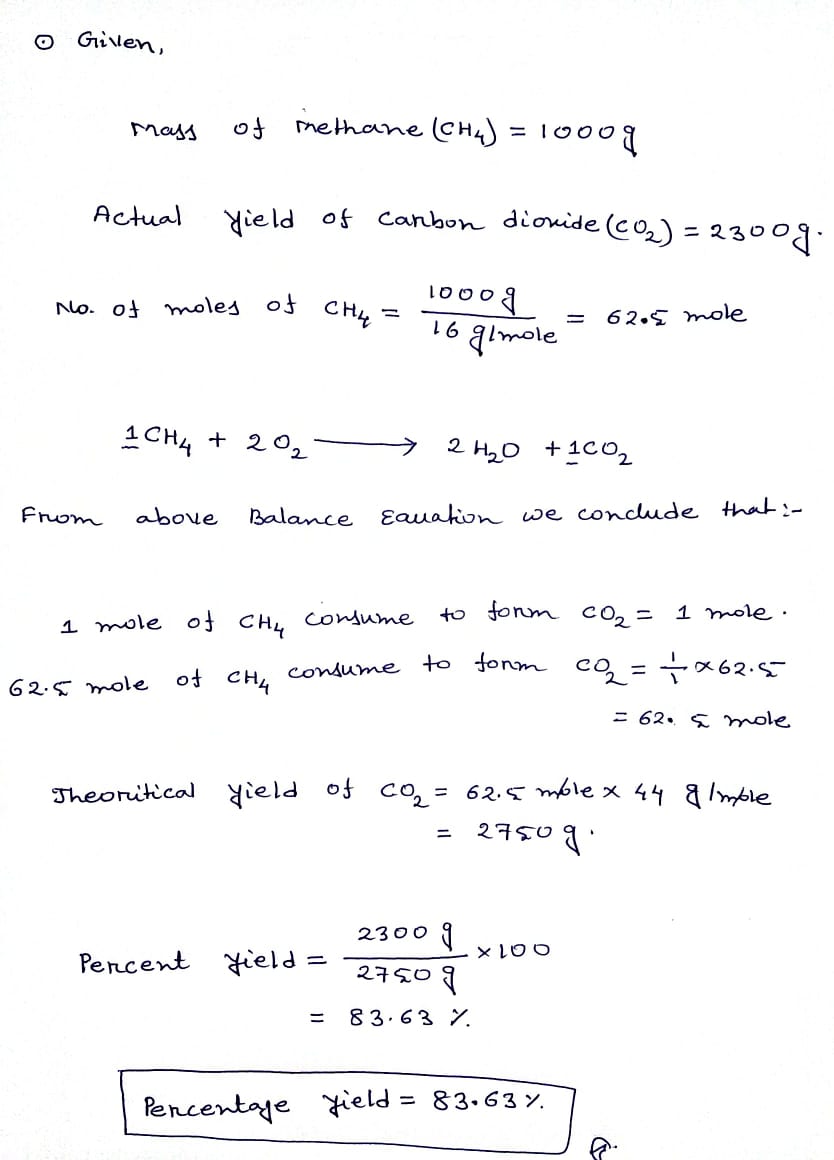 ⊙ Given,
Mass of methane (CH₄) = 1000 g
Actual Yield of carbon dioxide (CO₂) = 2300 g.
No. of moles of CH₄ = 1000 g / 16 g/mole = 62.5 mole
1 CH₄ + 2 O₂ ⟶ 2 H₂O + 1 CO₂
From above Balance Eauation we conclude that :-
1 mole of CH₄ consume to form CO₂ = 1 mole.
62.5 mole of CH₄ consume to form CO₂ = 1/1 × 62.5
= 62.5 mole
Theoritical yield of CO₂ = 62.5 mole × 44 g/mole
= 2750 g.
Percent yield = 2300 g / 2750 g × 100
= 83.63 %.
Percentage yield = 83.63 %.